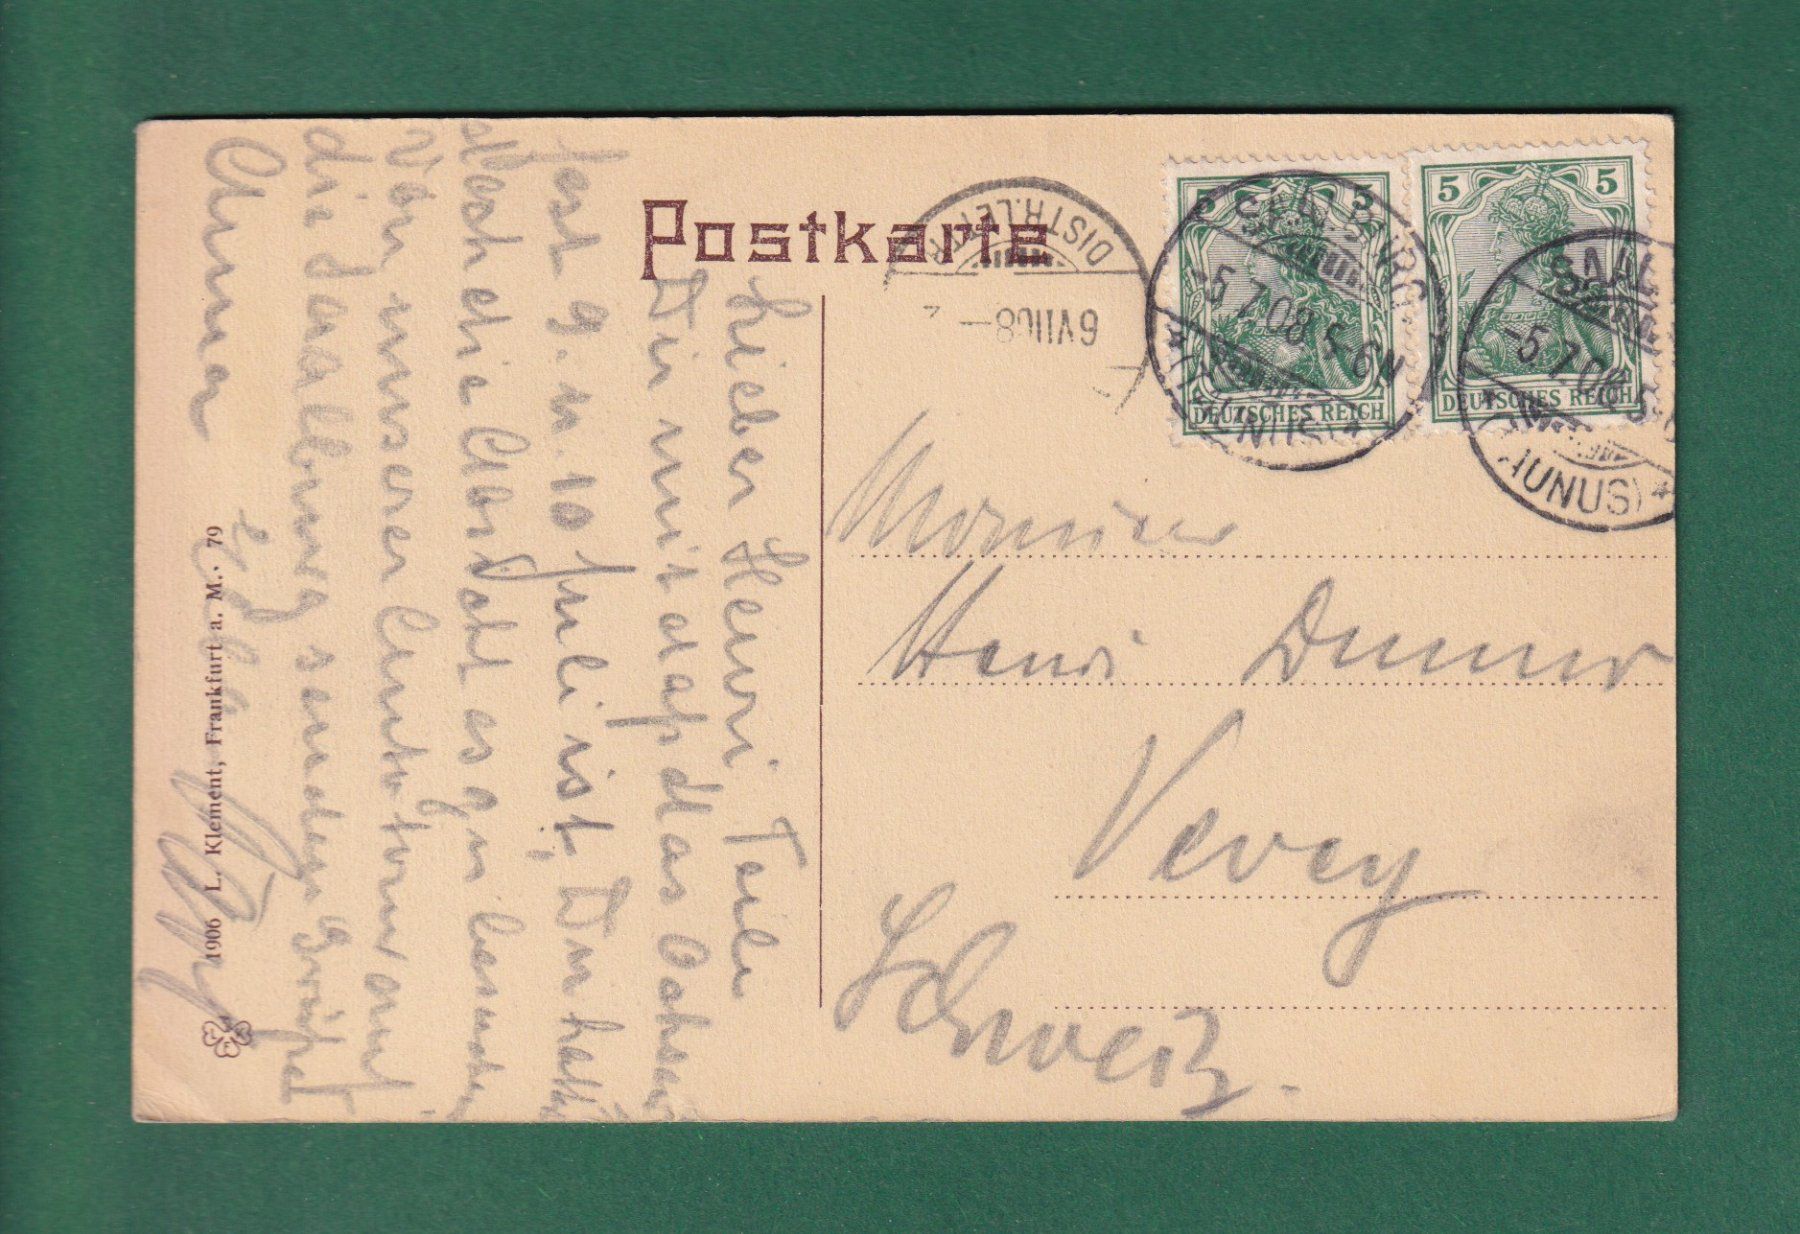 Postkarte
Lieber Henri, Teile
Dir mit daß das
fest 9. u. 10 Juli ist, Du
die Absicht es zu besuchen
Von unserer Autotour auf
die Saalburg senden Grüße
Anna
Monsieur
Henri
Vevey
Schweiz.
5 5
DEUTSCHES REICH
5 5
DEUTSCHES REICH
SAALBURG
-5.7.08.5-6N
(TAUNUS) *
SAAL
-5.7.08.5
(TAUNUS) *
DISTR. LETTR
6 VII 08 —
1906 L. Klement, Frankfurt a. M. 79